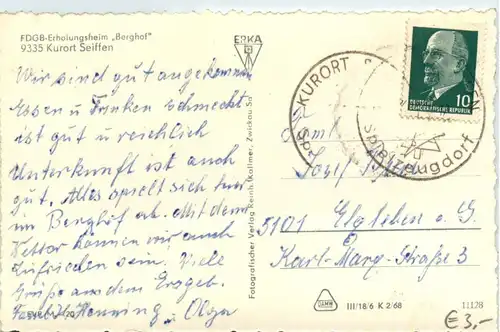 FDGB-Erholungsheim „Berghof"
9335 Kurort Seiffen
Wir sind gut angekommen
Essen u Trinken schmeckt
ist gut u reichlich
Unterkunft ist auch
gut. Alles spielt sich
im Berghof ab. Mit dem
Wetter können wir auch
zufrieden sein. Viele
Grüße aus dem Erzgeb.
Familie Henning, Olga
ERKA
Fotografischer Verlag Reinh. Kallmer, Zwickau Sa
KURORT
Spielzeugdorf
DEUTSCHE
DEMOKRATISCHE REPUBLIK
10
Fam.
Josef
5101 Elxleben a. G.
Karl-Marx-Straße 3
III/18/6 K 2/68
11128
€ 3,-